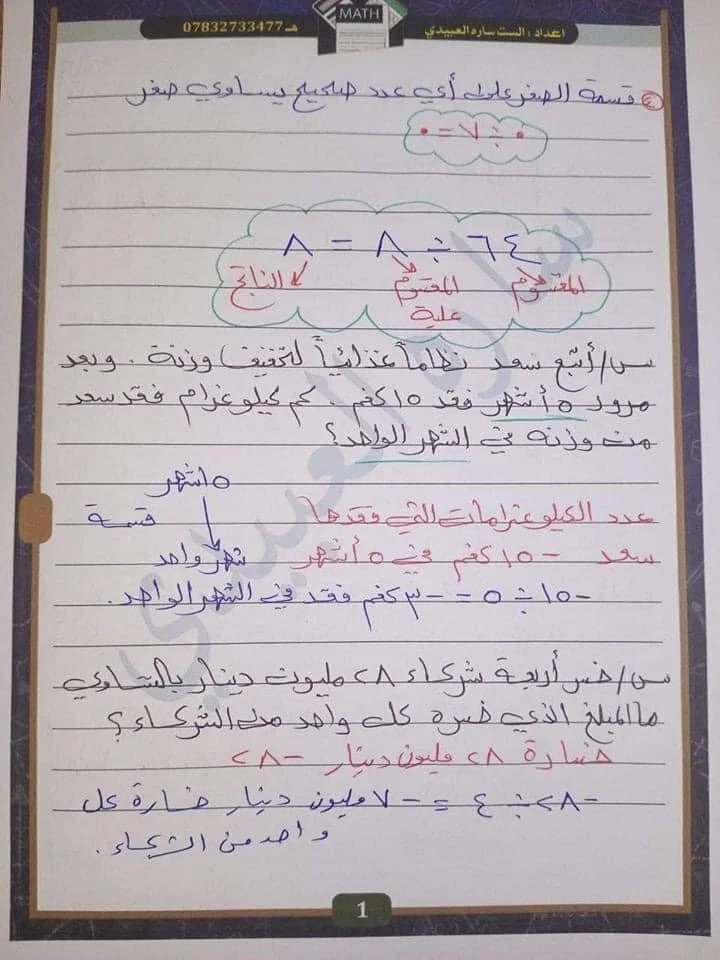 اعداد : الست ساره العبيدي
MATH
هـ 07832733477
٤ قسمة الصفر على أي عدد صحيح يساوي صفر
٠ ÷ ٧ = ٠
٦٤ ÷ ٨ = ٨
المقسوم المقسوم علية الناتج
س/ أتبع سعد نظاماً غذائياً لتخفيف وزنة . وبعد
مرور ٥ أشهر فقد ١٥ كغم . كم كيلو غرام فقد سعد
من وزنه في الشهر الواحد؟
٥ اشهر
عدد الكيلو غرامات التي فقدها
قسمة
سعد -١٥ كغم في ٥ أشهر
شهر واحد
-١٥ ÷ ٥ = -٣ كغم فقد في الشهر الواحد.
س/ خسر أربعة شركاء ٢٨ مليون دينار بالتساوي
ما المبلغ الذي خسره كل واحد من الشركاء ؟
خسارة ٢٨ مليون دينار -٢٨
-٢٨ ÷ ٤ = -٧ مليون دينار خسارة كل
واحد من الشركاء .
1
سارة العبيدي